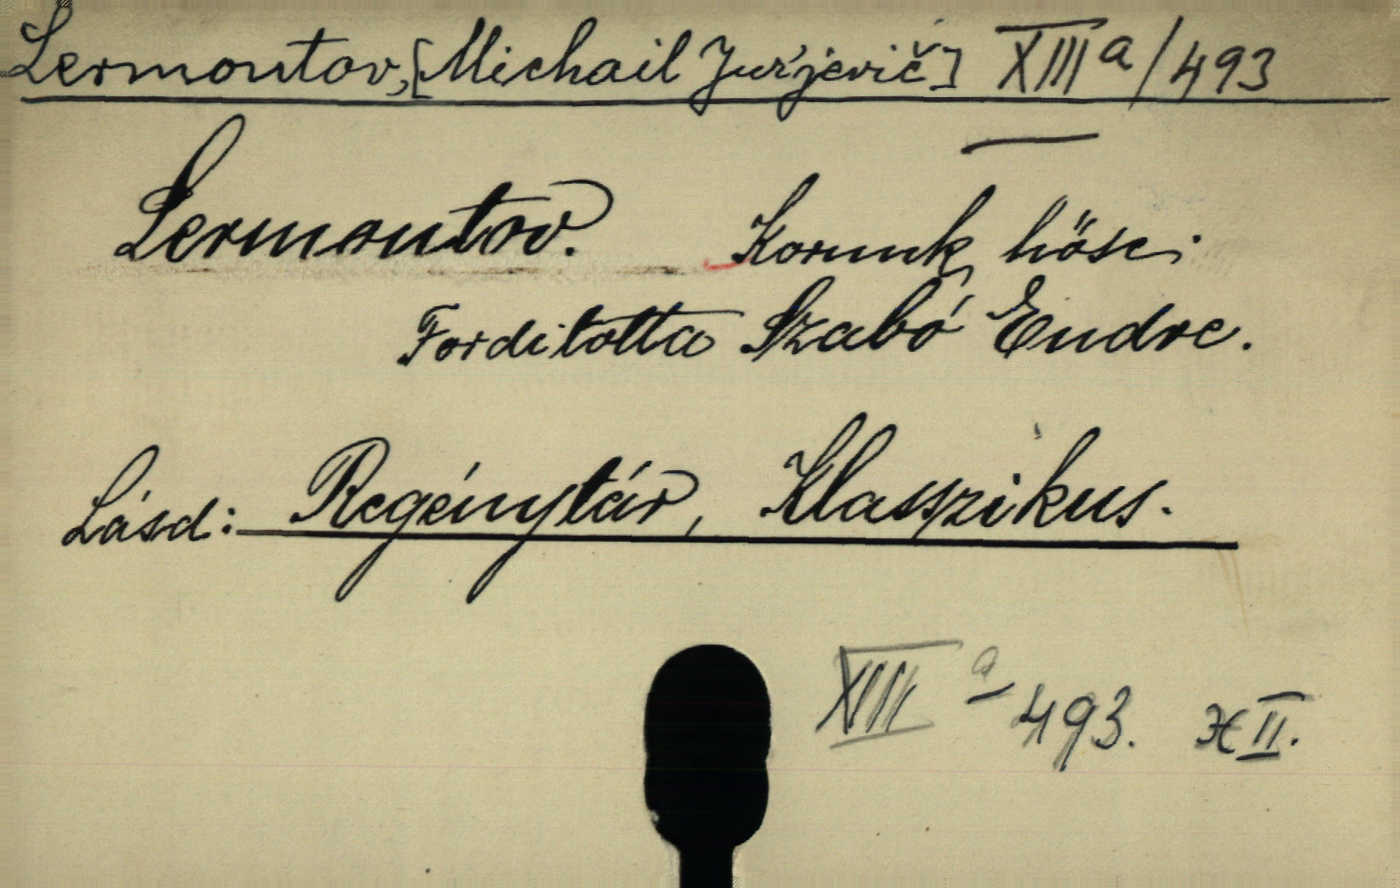 Lermontov, [Michail Jur'jevič] XIIIa/493
Lermontov. Korunk hősei
Forditotta Szabó Endre.
Lásd: Regénytár, Klasszikus.
XIII a 493. II.